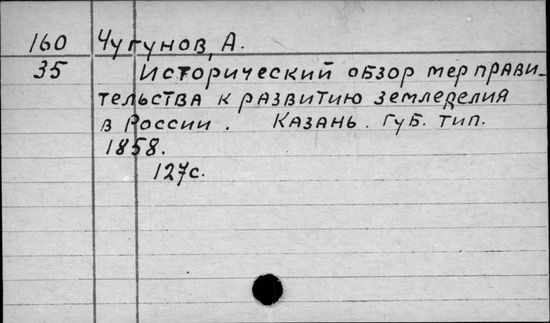 160 Чугунов, А.
35 Исторический обзор мер прави-
тельства к развитию земледелия
в России. Казань. Губ. тип.
1858.
127с.